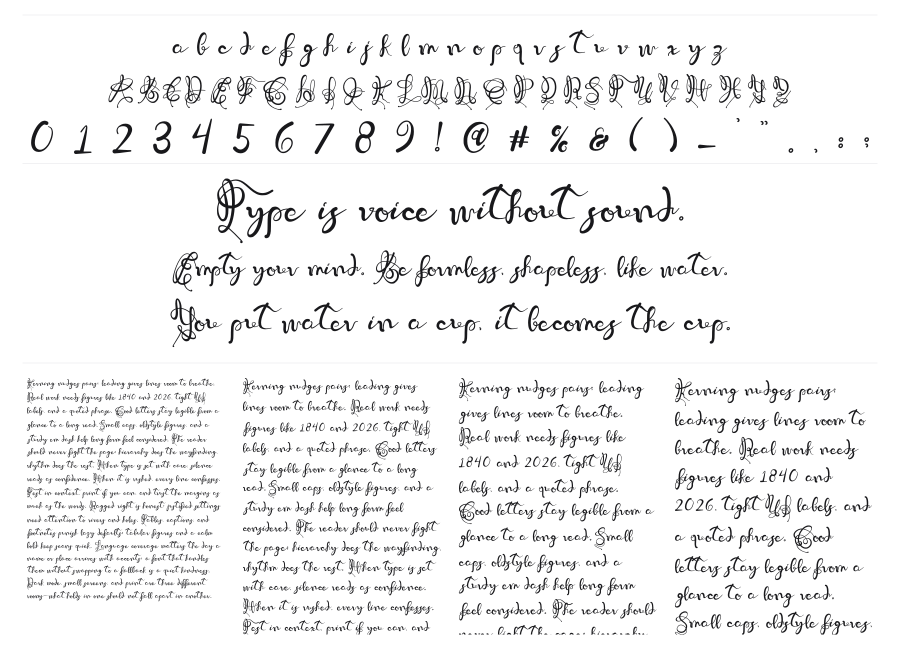 a b c d e f g h i j k l m n o p q r s t u v w x y z
A B C D E F G H I J K L M N O P Q R S T U V W X Y Z
0 1 2 3 4 5 6 7 8 9 ! @ # % & ( ) _ ' " . , : ;
Type is voice without sound.
Empty your mind. Be formless, shapeless, like water.
You put water in a cup, it becomes the cup.
Kerning nudges pairs; leading gives lines room to breathe.
Real work needs figures like 1840 and 2026, tight UI
labels, and a quoted phrase. Good letters stay legible from a
glance to a long read. Small caps, oldstyle figures, and a
sturdy em dash help long form feel considered. The reader
should never fight the page; hierarchy does the wayfinding,
rhythm does the rest. When type is set with care, silence
reads as confidence. When it is rushed, every line confesses.
Test in context, print if you can, and trust the margins as
much as the words. Ragged right is honest; justified settings
need attention to rivers and holes. Tables, captions, and
footnotes punish lazy defaults; tabular figures and a calm
bold keep pony quick. Language coverage matters the day a
name or place arrives with accents; a font that handles
them without swapping to a fallback is a quiet kindness.
Dark mode, small screens, and print are three different
rooms—what holds in one should not fall apart in another.
Kerning nudges pairs; leading gives
lines room to breathe. Real work needs
figures like 1840 and 2026, tight UI
labels, and a quoted phrase. Good letters
stay legible from a glance to a long
read. Small caps, oldstyle figures, and a
sturdy em dash help long form feel
considered. The reader should never fight
the page; hierarchy does the wayfinding,
rhythm does the rest. When type is set
with care, silence reads as confidence.
When it is rushed, every line confesses.
Test in context, print if you can, and
Kerning nudges pairs; leading
gives lines room to breathe.
Real work needs figures like
1840 and 2026, tight UI
labels, and a quoted phrase.
Good letters stay legible from a
glance to a long read. Small
caps, oldstyle figures, and a
sturdy em dash help long form
feel considered. The reader should
never fight the page; hierarchy
Kerning nudges pairs;
leading gives lines room to
breathe. Real work needs
figures like 1840 and
2026, tight UI labels, and
a quoted phrase. Good
letters stay legible from a
glance to a long read.
Small caps, oldstyle figures,